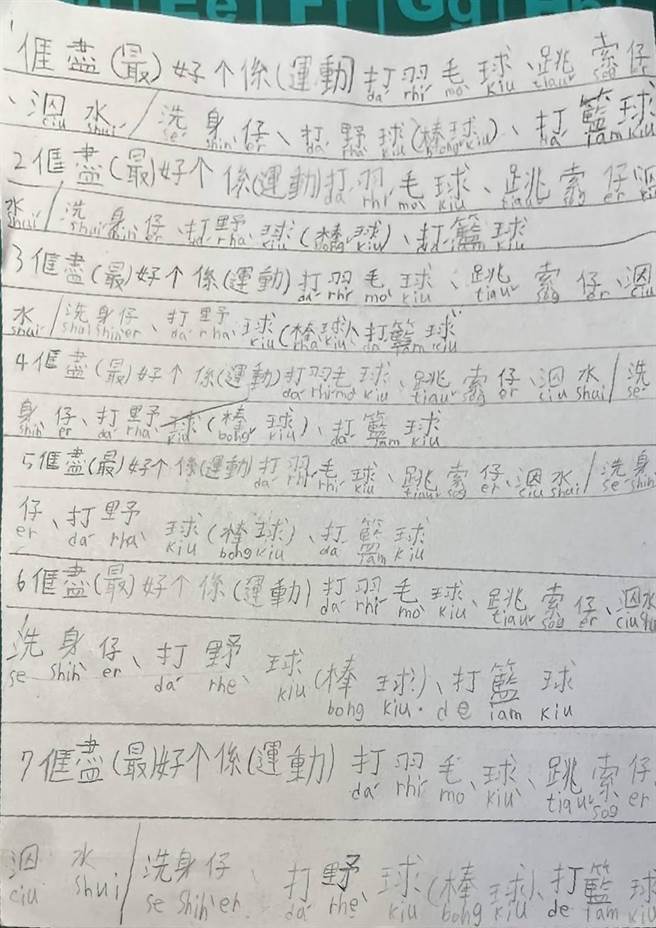 Ee Ff Gg Hh
1 𠊎盡(最)好个係(運動)打羽毛球、跳索仔
da rhi mo kiu tiau sog er
、泅水/洗身仔、打野球(棒球)、打籃球
ciu shui se shin er da rha kiu bong kiu da lam kiu
2 𠊎盡(最)好个係(運動)打羽毛球、跳索仔、泅
da rhi mo kiu tiau sog er
水/洗身仔、打野球(棒球)、打籃球
shui shui shin er da rha kiu bong kiu da lam kiu
3 𠊎盡(最)好个係(運動)打羽毛球、跳索仔、泅
da rhi mo kiu tiau sog er ciu
水/洗身仔、打野球(棒球)、打籃球
shui shui shin er da rha kiu rha kiu da lam kiu
4 𠊎盡(最)好个係(運動)打羽毛球、跳索仔、泅水/洗
da rhi mo kiu tiau sog er ciu shui se
身仔、打野球(棒球)、打籃球
shin er da rha kiu bong kiu da lam kiu
5 𠊎盡(最)好个係(運動)打羽毛球、跳索仔、泅水/洗身
da rhi rhi kiu tiau sog er ciu shui se shin
仔、打野球(棒球)、打籃球
er da rha kiu bong kiu da lam kiu
6 𠊎盡(最)好个係(運動)打羽毛球、跳索仔、泅水
da rhi mo kiu tiau sog er ciu
洗身仔、打野球(棒球)、打籃球
se shin er da rhe kiu bong kiu de lam kiu
7 𠊎盡(最)好个係(運動)打羽毛球、跳索仔
da rhi mo kiu tiau sog er
泅水/洗身仔、打野球(棒球)、打籃球
ciu shui se shin er da rhe kiu bong kiu de lam kiu